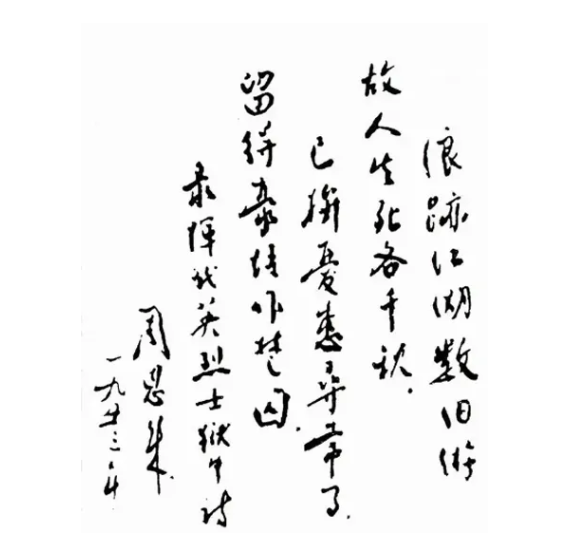 浪跡江湖数旧游
故人生死各千秋.
已擯憂患尋常事.
留得豪情作楚囚.
录恽代英烈士獄中诗
周恩来.
一九五三.年